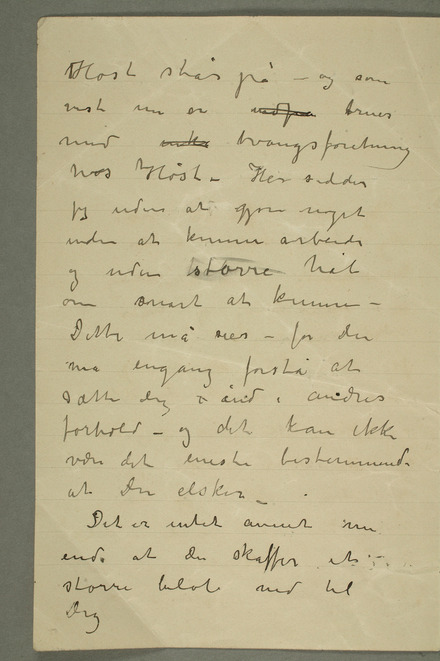 Høst står på – og som
vist nu er udpa truer
med enke tvangsforretning
hos Høst – Her sidder
jeg uden at gjøre noget
uden at kunne arbeide
og uden større håb
om snart at kunne –
Dette må sies – for Du
må engang forstå at
sætte Dig i ånd i andres
forhold – og det kan ikke
være det eneste bestemmende
at Du elsker –
Det er intet annet nu
end at du skaffer et
større beløb ned til
Dig